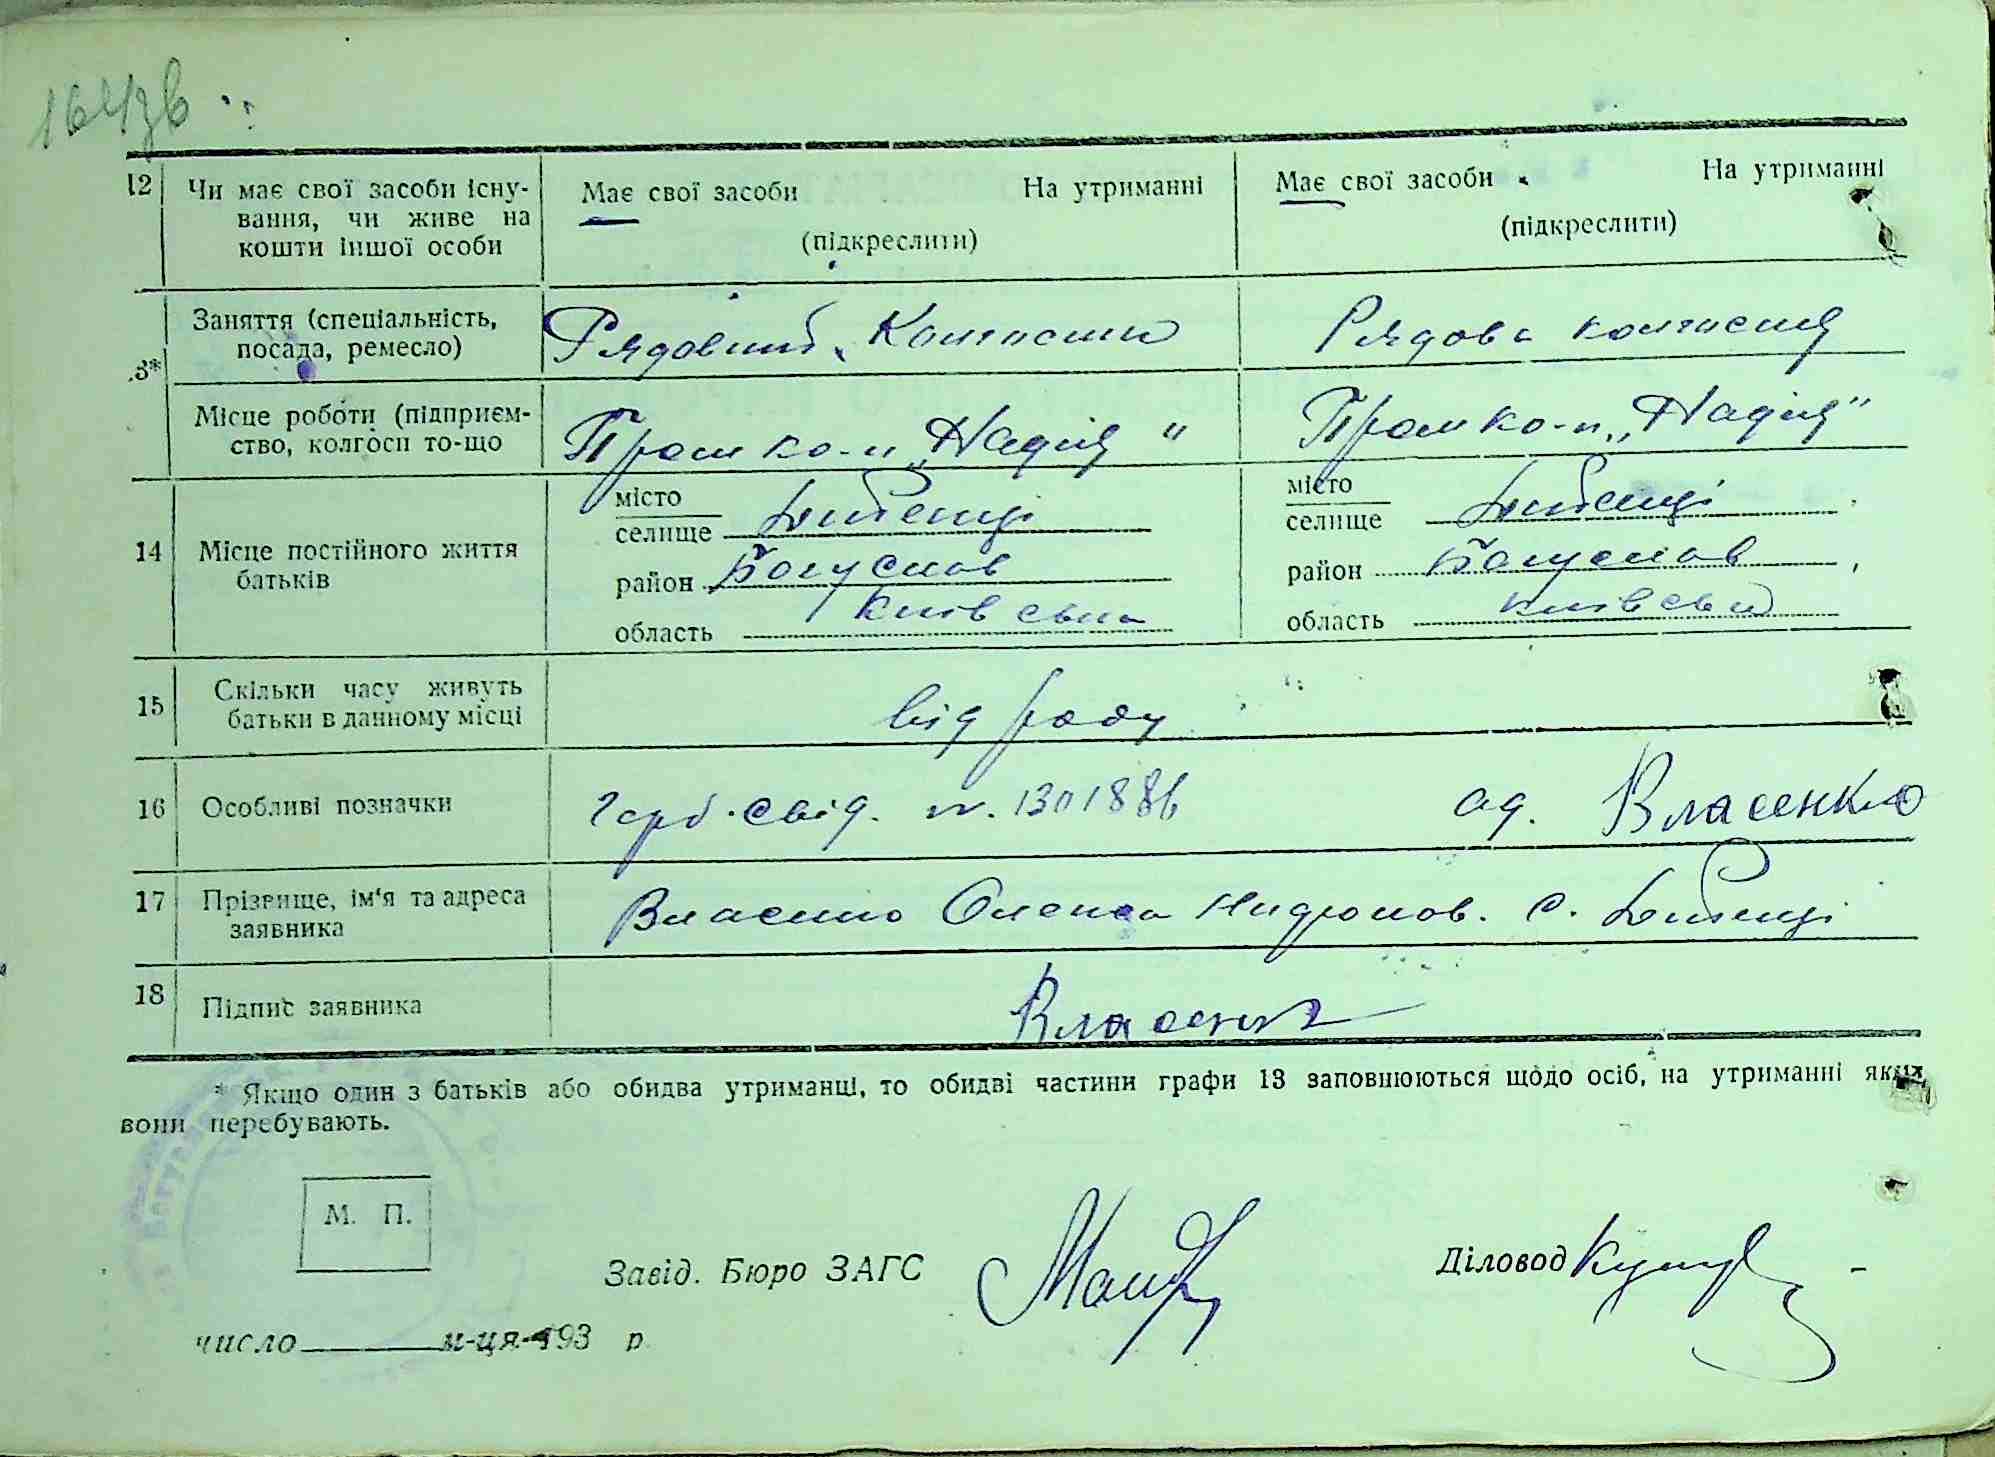 164зв
12 Чи має свої засоби існування, чи живе на кошти іншої особи
Має свої засоби На утриманні
(підкреслити)
Має свої засоби На утриманні
(підкреслити)
Заняття (спеціальність,
посада, ремесло)
Рядовий
Рядова
3*
Місце роботи (підприєм-
ство, колгосп то-що
Пром ко-п „Надія"
Пром ко-п „Надія"
14 Місце постійного життя
батьків
місто
селище Дибенці
район Богуслав
область Київська
місто
селище Дибенці
район Богуслав
область Київська
15 Скільки часу живуть
батьки в данному місці
від роду
16 Особливі позначки
Герб. свід. №. 1301886 од. Власенко
17 Прізвище, ім'я та адреса
заявника
Власенко Олекса с. Дибенці
18 Підпис заявника
Власенко
* Якщо один з батьків або обидва утриманці, то обидві частини графи 13 заповнюються щодо осіб, на утриманні яких
вони перебувають.
М. П.
Завід. Бюро ЗАГС
Діловод
число м-ця 193 р.